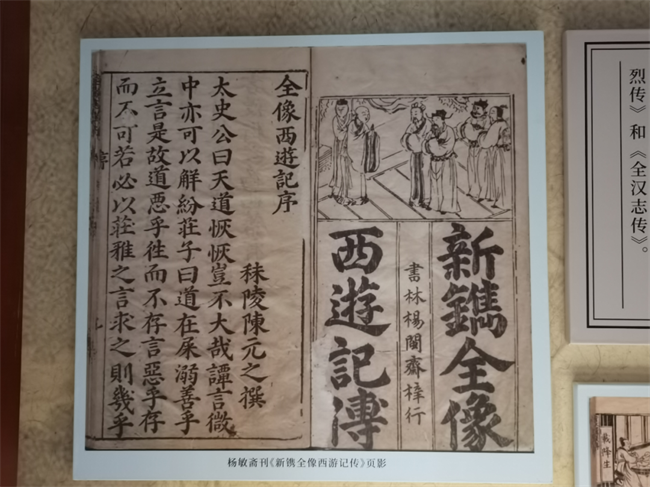 新鐫全像
書林楊閩齋梓行
西遊記傳
全像西遊記序
秣陵陳元之撰
太史公曰天道恢恢豈不大哉譚言微
中亦可以解紛莊子曰道在屎溺善乎
立言是故道惡乎徃而不存言惡乎存
而不可若必以莊雅之言求之則幾乎
杨敏斋刊《新镌全像西游记传》页影
烈传》和《全汉志传》。